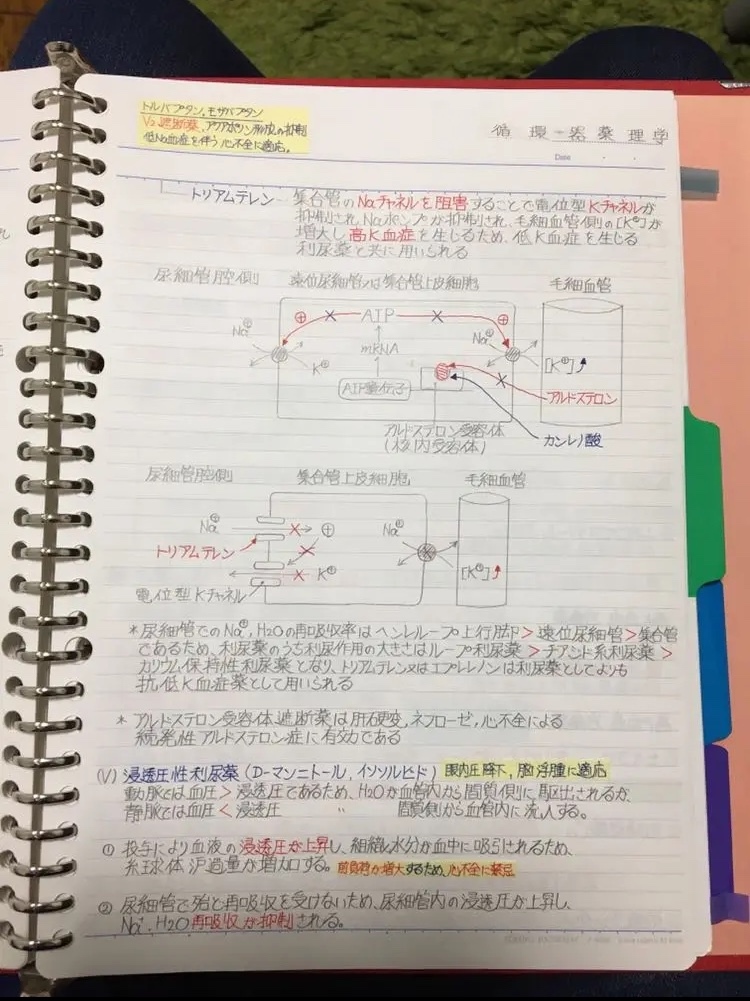 トルバプタン、モザバプタン
V2遮断薬、アクアポリン形成の抑制
低Na血症を伴う心不全に適応。
循環器薬理学
Date
トリアムテレン 集合管のNaチャネルを阻害することで電位型Kチャネルが
抑制され Naポンプが抑制され、毛細血管側の[K⊕]が
増大し 高K血症を生じるため、低K血症を生じる
利尿薬と共に用いられる
尿細管腔側 遠位尿細管又は集合管上皮細胞 毛細血管
⊕ AIP ⊕
Na⊕ Na⊕
mRNA
K⊕ [K⊕]
AIP遺伝子 アルドステロン
アルドステロン受容体 カンレノ酸
(核内受容体)
尿細管腔側 集合管上皮細胞 毛細血管
Na⊕ ⊕ Na⊕
トリアムテレン
K⊕ [K⊕]
電位型Kチャネル
*尿細管でのNa⊕、H2Oの再吸収率はヘンレループ上行脚>遠位尿細管>集合管
であるため、利尿薬のうち利尿作用の大きさはループ利尿薬>チアジド系利尿薬>
カリウム保持性利尿薬となり、トリアムテレン又はエプレレノンは利尿薬としてよりも
抗低K血症薬として用いられる
*アルドステロン受容体遮断薬は肝硬変、ネフローゼ、心不全による
続発性アルドステロン症に有効である
(V)浸透圧性利尿薬(D-マンニトール、イソソルビド) 眼内圧降下、脳浮腫に適応
動脈では血圧>浸透圧であるため、H2Oが血管内から間質側に駆出されるが、
静脈では血圧<浸透圧 〃 間質側から血管内に流入する。
① 投与により血液の浸透圧が上昇し、組織水分が血中に吸引されるため、
糸球体沪過量が増加する。 前負荷が増大するため、心不全に禁忌
② 尿細管で殆と再吸収を受けないため、尿細管内の浸透圧が上昇し、
Na⁺、H2O再吸収が抑制される。